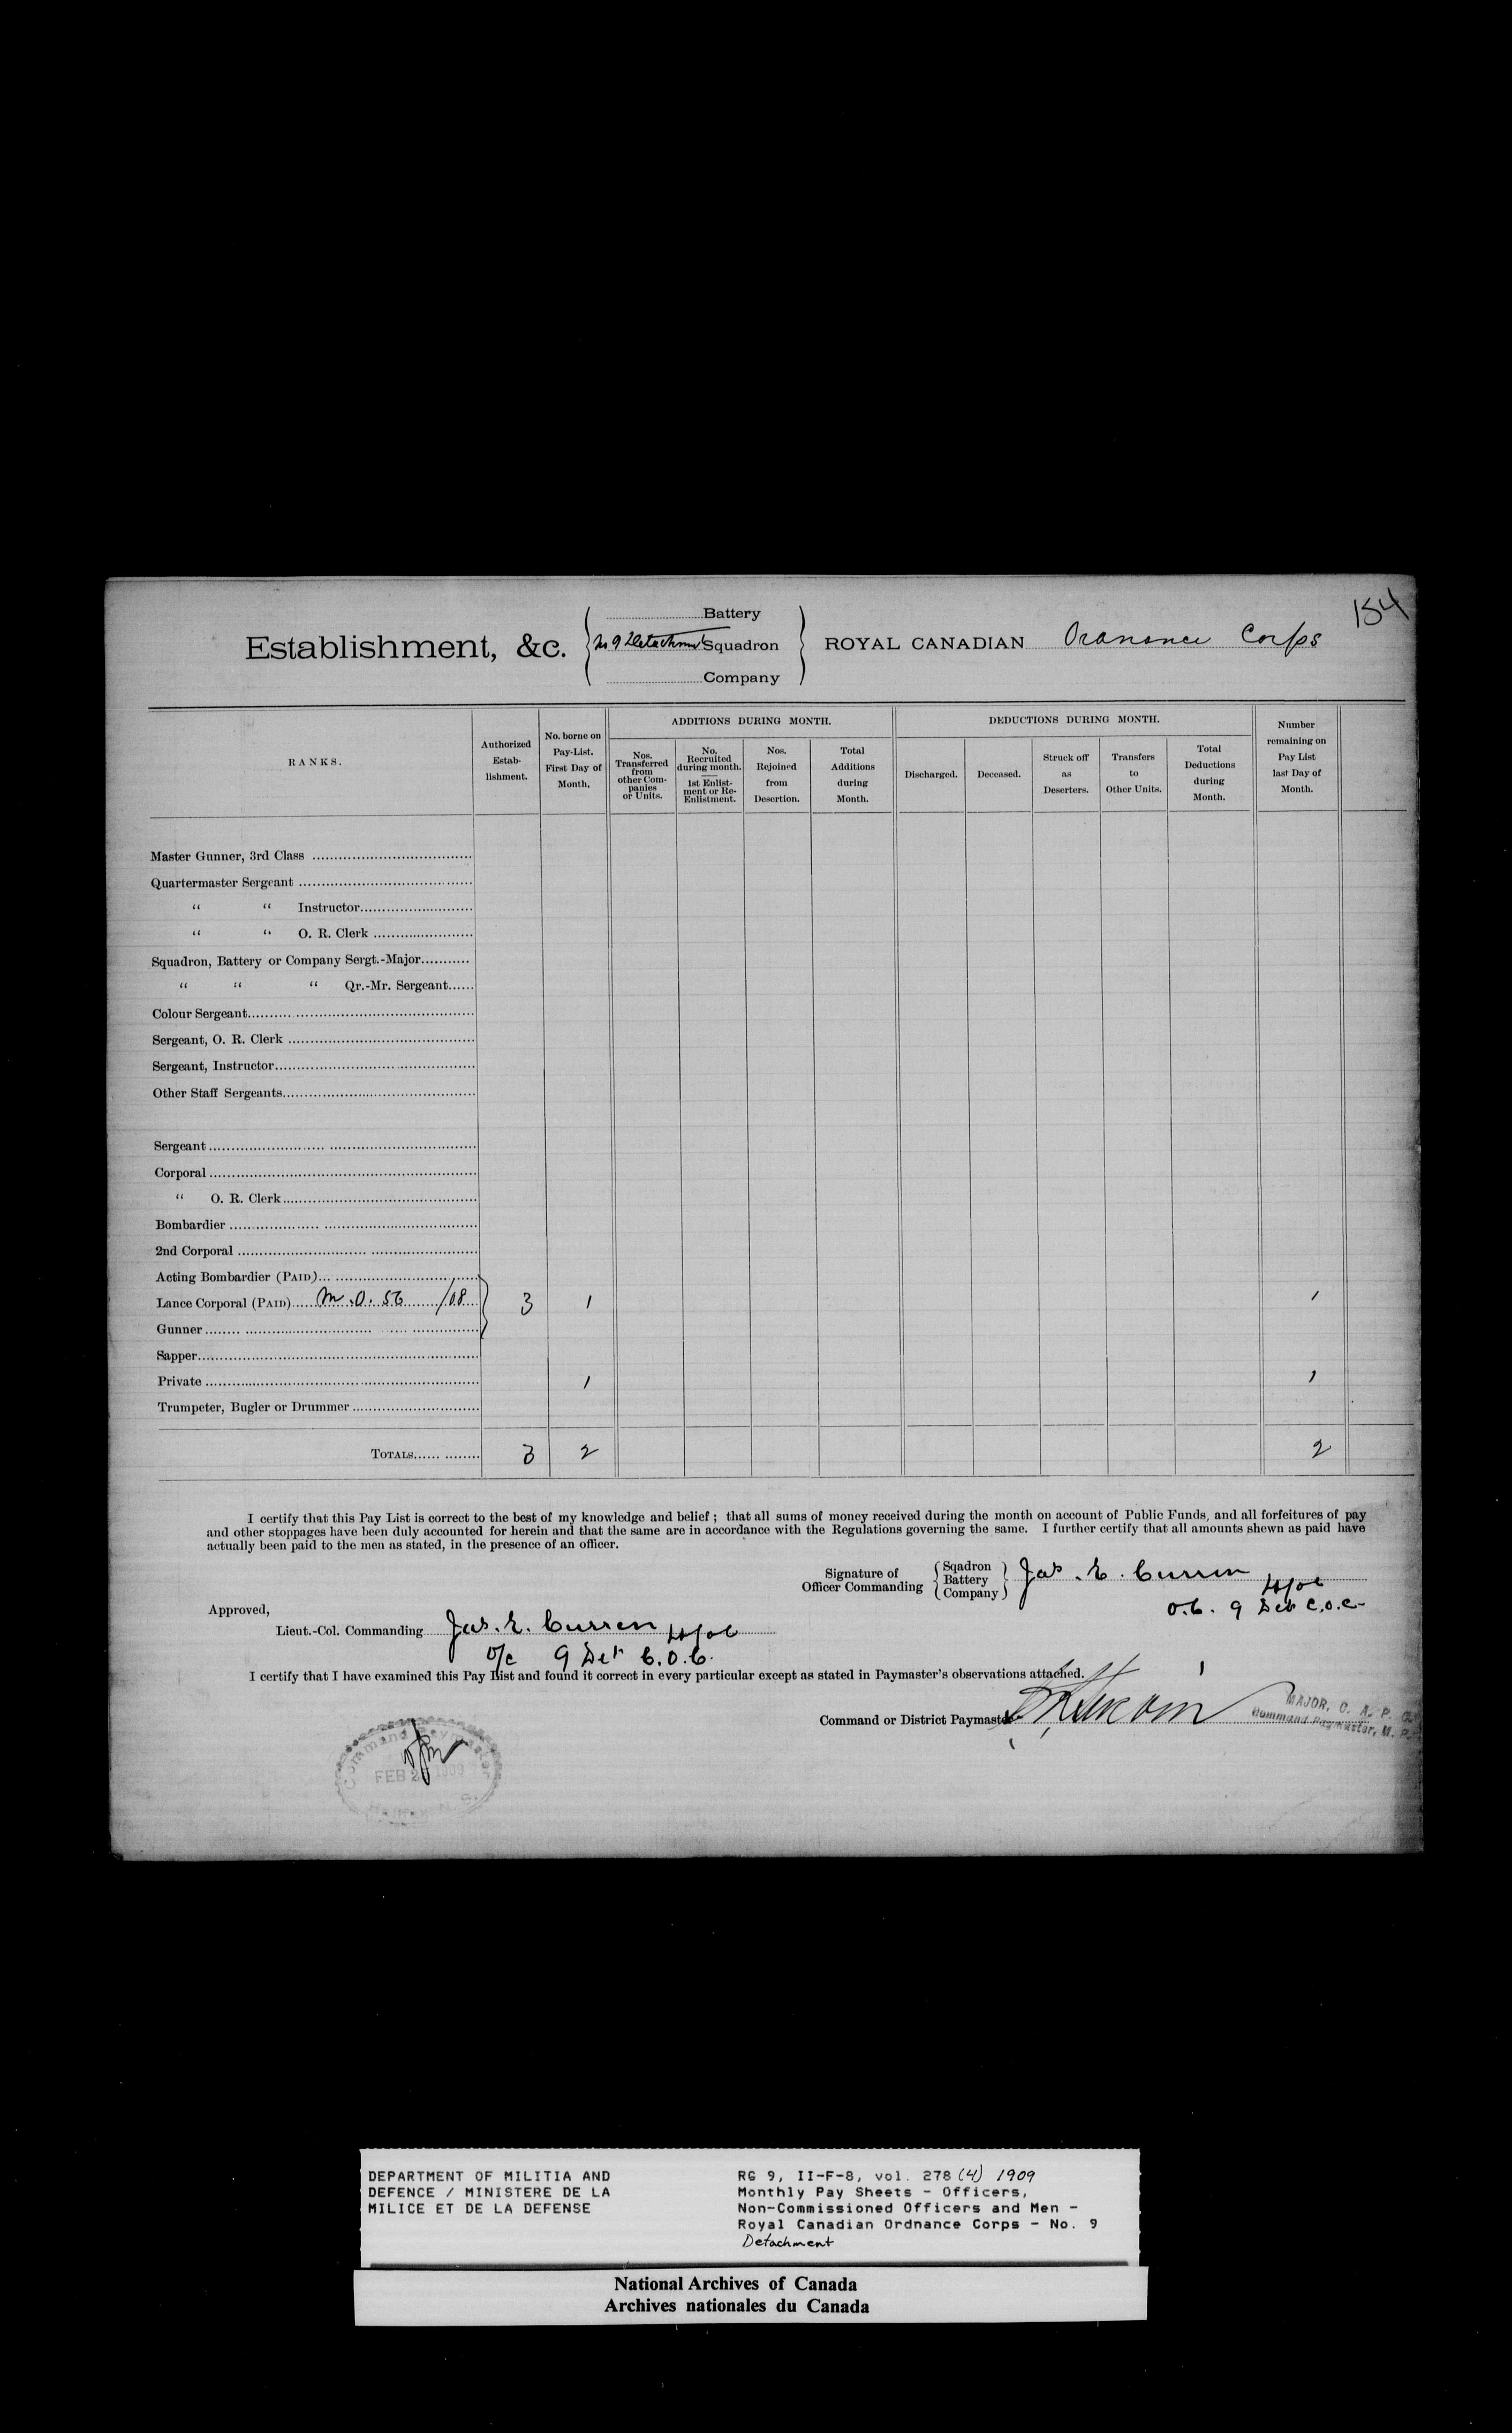 154
Establishment, &c.
Battery
No 9 Detachment Squadron
Company
ROYAL CANADIAN Ordnance Corps
RANKS.
Authorized Estab- lishment.
No. borne on Pay-List. First Day of Month.
ADDITIONS DURING MONTH.
Nos. Transferred from other Com- panies or Units.
No. Recruited during month. 1st Enlist- ment or Re- Enlistment.
Nos. Rejoined from Desertion.
Total Additions during Month.
DEDUCTIONS DURING MONTH.
Discharged.
Deceased.
Struck off as Deserters.
Transfers to Other Units.
Total Deductions during Month.
Number remaining on Pay List last Day of Month.
Master Gunner, 3rd Class
Quartermaster Sergeant
" " Instructor
" " O. R. Clerk
Squadron, Battery or Company Sergt.-Major
" " " Qr.-Mr. Sergeant
Colour Sergeant
Sergeant, O. R. Clerk
Sergeant, Instructor
Other Staff Sergeants
Sergeant
Corporal
" O. R. Clerk
Bombardier
2nd Corporal
Acting Bombardier (PAID)
Lance Corporal (PAID) M.O. 56 /08 3 1 1
Gunner
Sapper
Private 1 1
Trumpeter, Bugler or Drummer
TOTALS 3 2 2
I certify that this Pay List is correct to the best of my knowledge and belief ; that all sums of money received during the month on account of Public Funds, and all forfeitures of pay
and other stoppages have been duly accounted for herein and that the same are in accordance with the Regulations governing the same. I further certify that all amounts shewn as paid have
actually been paid to the men as stated, in the presence of an officer.
Signature of Officer Commanding
Sqadron
Battery
Company
Jas. E. Curren
O.C. 9 Det C.O.C.
Approved,
Lieut.-Col. Commanding Jas. E. Curren
O/c 9 Det C.O.C.
I certify that I have examined this Pay List and found it correct in every particular except as stated in Paymaster's observations attached.
Command or District Paymaster
MAJOR, C. A. P. C.
Command Paymaster, M. P.
Command Paymaster
FEB 2 1909
HALIFAX N. S.
DEPARTMENT OF MILITIA AND
DEFENCE / MINISTERE DE LA
MILICE ET DE LA DEFENSE
RG 9, II-F-8, vol. 278 (4) 1909
Monthly Pay Sheets - Officers,
Non-Commissioned Officers and Men -
Royal Canadian Ordnance Corps - No. 9
Detachment
National Archives of Canada
Archives nationales du Canada